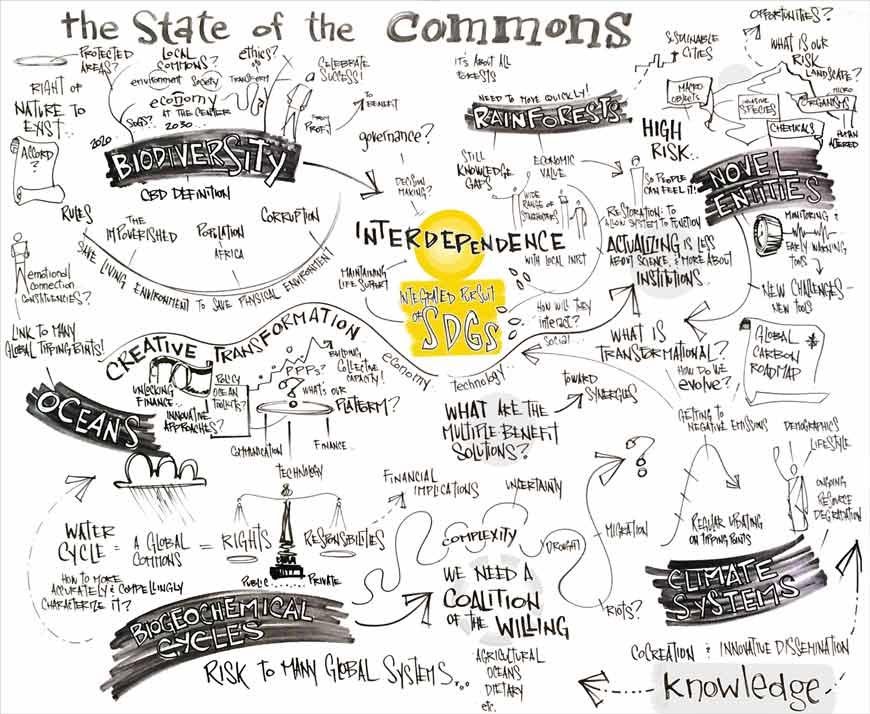 the State of the Commons
PROTECTED
AREAS?
LOCAL
COMMONS?
ethics?
environment society TRANSFORM
economy
AT THE CENTER
2020
SDGs?
2030
CELEBRATE
a SUCCESS!
FROM
PROFIT
TO
BENEFIT
RIGHT OF
NATURE TO
EXIST...
ACCORD?
BIODIVERSITY
CBD DEFINITION
RULES
THE
IMPOVERISHED
POPULATION
AFRICA
CORRUPTION
SAVE LIVING ENVIRONMENT TO SAVE PHYSICAL ENVIRONMENT
emotional
connection
CONSTITUENCIES?
LINK TO MANY
GLOBAL TIPPING POINTS!
governance?
DECISION
MAKING?
IT'S ABOUT ALL
FORESTS
NEED TO MOVE QUICKLY!
RAINFORESTS
STILL
KNOWLEDGE
GAPS
ECONOMIC
VALUE
WIDE
RANGE OF
STAKEHOLDERS
WITH LOCAL INPUT
SUSTAINABLE
CITIES
OPPORTUNITIES?
WHAT IS OUR
RISK
LANDSCAPE?
MACRO
OBJECTS
INVASIVE
SPECIES
MICRO
ORGANISMS
CHEMICALS
HUMAN
ALTERED
HIGH
RISK...
SO PEOPLE
CAN FEEL IT!
NOVEL
ENTITIES
RESTORATION: TO
ALLOW SYSTEM TO FUNCTION
ACTUALIZING IS LESS
ABOUT SCIENCE, & MORE ABOUT
INSTITUTIONS
MONITORING &
EARLY WARNING
TOOLS
NEW CHALLENGES
NEW TOOLS
INTERDEPENDENCE
MAINTAINING
LIFE SUPPORT
INTEGRATED PURSUIT
OF SDGs
HOW WILL THEY
interact?
SOCIAL...
economy
technology...
CREATIVE TRANSFORMATION
UNLOCKING
FINANCE...
INNOVATIVE
APPROACHES?
POLICY
OCEAN
TOOLKITS?
PPPs?
BUILDING
COLLECTIVE
CAPACITY!
WHAT'S OUR
PLATFORM?
COMMUNICATION
TECHNOLOGY
FINANCE...
OCEANS
WHAT IS
TRANSFORMATIONAL?
HOW DO WE
evolve?
GLOBAL
CARBON
ROADMAP
TOWARD
SYNERGIES
WHAT ARE THE
MULTIPLE BENEFIT
SOLUTIONS?
GETTING TO
NEGATIVE EMISSIONS
DEMOGRAPHICS
LIFESTYLE
ONGOING
RESOURCE
DEGRADATION
REGULAR UPDATING
ON TIPPING POINTS
WATER
CYCLE = A GLOBAL
COMMONS = RIGHTS RESPONSIBILITIES
PUBLIC... PRIVATE
HOW TO MORE
ACCURATELY & COMPELLINGLY
CHARACTERIZE IT?
FINANCIAL
IMPLICATIONS
UNCERTAINTY
COMPLEXITY
DROUGHT
MIGRATION
RIOTS?
WE NEED A
COALITION
OF THE WILLING
AGRICULTURAL
OCEANS
DIETARY
etc.
BIOGEOCHEMICAL
CYCLES
RISK TO MANY GLOBAL SYSTEMS...
CLIMATE
SYSTEMS
COCREATION & INNOVATIVE DISSEMINATION
knowledge